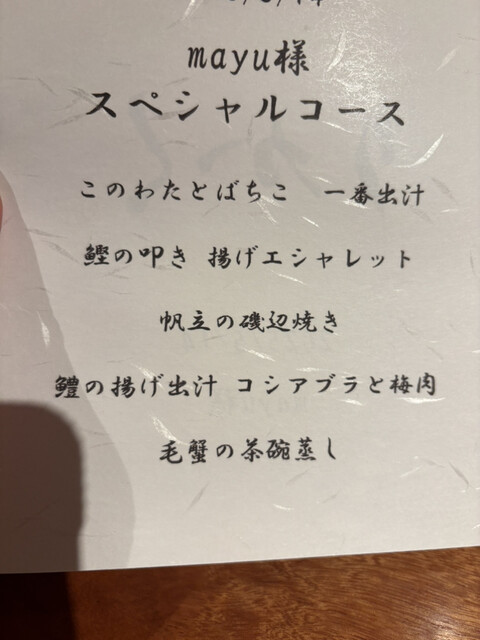 mayu様
スペシャルコース
このわたとばちこ　一番出汁
鰹の叩き 揚げエシャレット
帆立の磯辺焼き
鱧の揚げ出汁 コシアブラと梅肉
毛蟹の茶碗蒸し